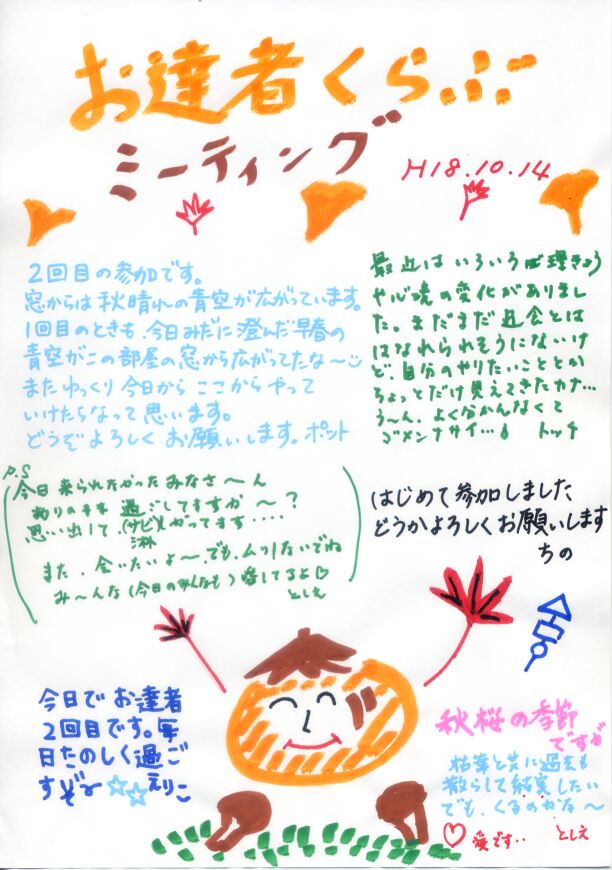 お達者くらぶ
ミーティング
H18.10.14
2回目の参加です。
窓からは秋晴れの青空が広がっています。
1回目のときも、今日みたいに澄んだ早春の
青空がこの部屋の窓から広がってたな〜
またゆっくり今日からここからやって
いけたらなって思います。
どうぞよろしくお願いします。ポット
最近はいろいろ環きょう
や心境の変化がありまし
た。まだまだ過食とは
はなれられそうにないけ
ど、自分のやりたいこととか
ちょっとだけ見えてきたカナ…
う〜ん、よくわかんなくて
ゴメンナサイ… トッチ
P.S
今日来られなかったみなさ〜ん
ありのまま過ごしてますか〜?
思い出して、(サビ)しがってます.....
淋
また、会いたいよ〜、でも、ムリしないでね
み〜んな(今日のみんなも)愛してるよ♡
としえ
はじめて参加しました
どうかよろしくお願いします
ちの
今日でお達者
2回目です。毎
日たのしく過ご
すぞ〜☆☆えりこ
秋桜の季節
ですが
枯葉と共に過去も
散らして結実したい
でも、くるのかな〜
♡愛です.. としえ